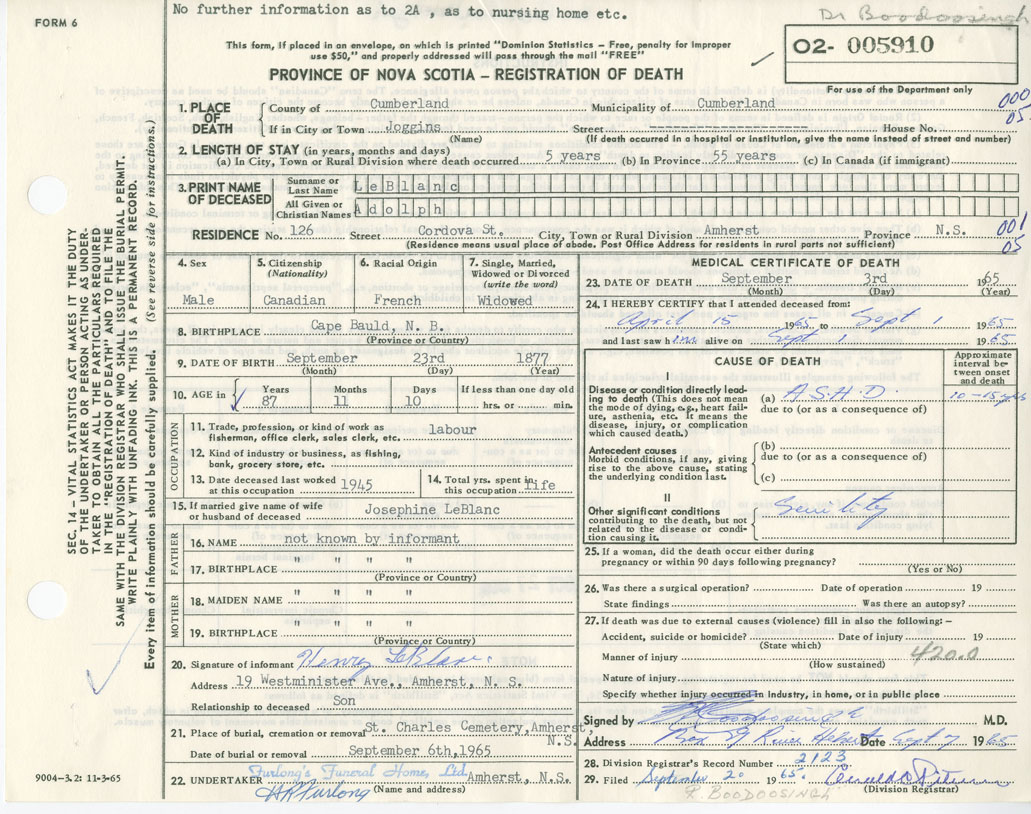 FORM 6
No further information as to 2A , as to nursing home etc.
Dr Boodoosingh
This form, if placed in an envelope, on which is printed "Dominion Statistics – Free, penalty for improper
use $50," and properly addressed will pass through the mail "FREE"
O2- 005910
PROVINCE OF NOVA SCOTIA – REGISTRATION OF DEATH
For use of the Department only
1. PLACE OF DEATH
County of Cumberland Municipality of Cumberland
000
05
If in City or Town Joggins Street House No.
(Name) (If death occurred in a hospital or institution, give the name instead of street and number)
2. LENGTH OF STAY (in years, months and days)
(a) In City, Town or Rural Division where death occurred 5 years (b) In Province 55 years (c) In Canada (if immigrant)
3. PRINT NAME OF DECEASED
Surname or Last Name LeBlanc
All Given or Christian Names Adolph
RESIDENCE No. 126 Street Cordova St. City, Town or Rural Division Amherst Province N.S.
001
05
(Residence means usual place of abode. Post Office Address for residents in rural parts not sufficient)
4. Sex
Male
5. Citizenship
(Nationality)
Canadian
6. Racial Origin
French
7. Single, Married,
Widowed or Divorced
(write the word)
Widowed
8. BIRTHPLACE Cape Bauld, N. B.
(Province or Country)
9. DATE OF BIRTH September 23rd 1877
(Month) (Day) (Year)
10. AGE in Years 87 Months 11 Days 10 If less than one day old
hrs. or min.
OCCUPATION
11. Trade, profession, or kind of work as
fisherman, office clerk, sales clerk, etc. labour
12. Kind of industry or business, as fishing,
bank, grocery store, etc.
13. Date deceased last worked
at this occupation 1945
14. Total yrs. spent in
this occupation life
15. If married give name of wife
or husband of deceased Josephine LeBlanc
FATHER
16. NAME not known by informant
17. BIRTHPLACE " " "
(Province or Country)
MOTHER
18. MAIDEN NAME " " "
19. BIRTHPLACE " " "
(Province or Country)
20. Signature of informant Henry LeBlanc
Address 19 Westminister Ave., Amherst, N. S.
Relationship to deceased Son
21. Place of burial, cremation or removal St. Charles Cemetery, Amherst,
N.S.
Date of burial or removal September 6th, 1965
22. UNDERTAKER Furlong's Funeral Home, Ltd. Amherst, N.S.
(Name and address)
H R Furlong
9004–3.2: 11-3-65
MEDICAL CERTIFICATE OF DEATH
23. DATE OF DEATH September 3rd 1965
(Month) (Day) (Year)
24. I HEREBY CERTIFY that I attended deceased from:
April 15 1965 to Sept 1 1965
and last saw him alive on Sept 1 1965
CAUSE OF DEATH
Approximate
interval be-
tween onset
and death
I
Disease or condition directly lead-
ing to death (This does not mean
the mode of dying, e.g., heart fail-
ure, asthenia, etc. It means the
disease, injury, or complication
which caused death.)
(a) A.S.H.D. 10–15 yrs
due to (or as a consequence of)
Antecedent causes
Morbid conditions, if any, giving
rise to the above cause, stating
the underlying condition last.
(b)
due to (or as a consequence of)
(c)
II
Other significant conditions
contributing to the death, but not
related to the disease or condi-
tion causing it.
Senility
25. If a woman, did the death occur either during
pregnancy or within 90 days following pregnancy?
(Yes or No)
26. Was there a surgical operation? Date of operation 19
State findings Was there an autopsy?
27. If death was due to external causes (violence) fill in also the following: –
Accident, suicide or homicide? Date of injury 19
(State which)
420.0
Manner of injury
(How sustained)
Nature of injury
Specify whether injury occurred in industry, in home, or in public place
Signed by Boodoosingh M.D.
Address Box 9 River Hebert Date Sept 7 1965
28. Division Registrar's Record Number 2123
29. Filed September 20 1965.
(Division Registrar)
R. BOODOOSINGH
SEC. 14 – VITAL STATISTICS ACT MAKES IT THE DUTY
OF THE UNDERTAKER OR PERSON ACTING AS UNDER-
TAKER TO OBTAIN ALL THE PARTICULARS REQUIRED
IN THE "REGISTRATION OF DEATH" AND TO FILE THE
SAME WITH THE DIVISION REGISTRAR WHO SHALL ISSUE THE BURIAL PERMIT.
WRITE PLAINLY WITH UNFADING INK. THIS IS A PERMANENT RECORD.
Every item of information should be carefully supplied. (See reverse side for instructions.)